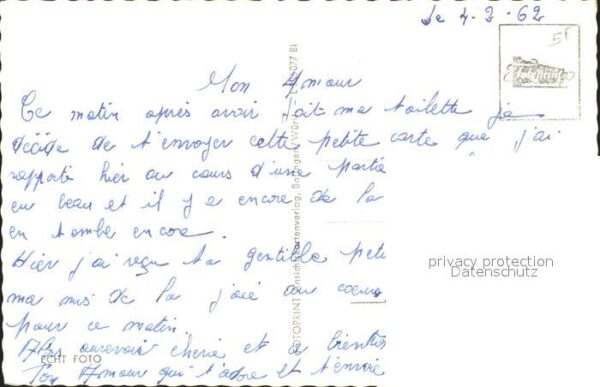 le 4-2-62
5F
Mon Amour
Ce matin après avoir fait ma toilette je
décide de t'envoyer cette petite carte que j'ai
rapporté hier au cours d'une partie
en beau et il y a encore de la
en tombe encore.
Hier j'ai reçu ta gentille peti
ma mis de la joie au coeur
pour ce matin.
aurevoir cherie et a bientôt
Ton Amour qui t'adore et t'envoie
ECHT FOTO
FOTOPRINT Ansichtskartenverlag,
077 BI
privacy protection
Datenschutz